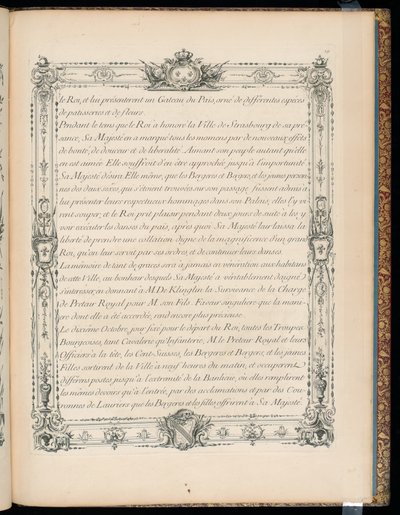 le Roi, et lui présenterent un Gateau du Païs, orné de différentes especes
de patisseries et de fleurs.
Pendant le tems que le Roi à honoré la Ville de Strasbourg de sa pré-
sence, Sa Majesté en a marqué tous les momens par de nouveaux effets
de bonté, de douceur et de liberalité. Aimant son peuple autant qu'elle
en est aimée. Elle souffroit d'en être approchée jusqu'à l'importunité.
Sa Majesté désira Elle même, que les Bergers et Bergeres, et les jeunes person-
nes des deux sexes, qui s'étoient trouvées sur son passage fussent admis à
lui présenter leurs respectueux hommages dans son Palais; elles l'y vi-
rent souper, et le Roi prit plaisir pendant deux jours de suite à les y
voir exécuter les danses du païs, après quoi Sa Majesté leur laissa la
liberté de prendre une collation, digne de la magnificence d'un grand
Roi, qu'on leur servit par ses ordres, et de continuer leurs danses.
La mémoire de tant de graces sera à jamais en vénération aux habitans
de cette Ville, au bonheur desquels Sa Majesté a véritablement daigné
s'interesser, en donnant à M. De Klinglin la Survivance de la Charge
de Preteur Royal pour M. son Fils. Faveur singuliere que la mani-
ere dont elle a été accordée, rend encore plus précieuse.
Le dixiéme Octobre, jour fixé pour le départ du Roi, toutes les Troupes
Bourgeoises, tant Cavalerie qu'Infanterie, M. le Preteur Royal et leurs
Officiers à la tête, les Cent-Suisses, les Bergeres et Bergers, et les jeunes
Filles sortirent de la Ville à neuf heures du matin, et occuperent
différens postes jusqu'à l'extremité de la Banlieue, où elles remplirent
les mêmes devoirs qu'à l'entrée, par des acclamations et par des Cou-
ronnes de Lauriers que les Bergeres et les filles offrirent à Sa Majesté.